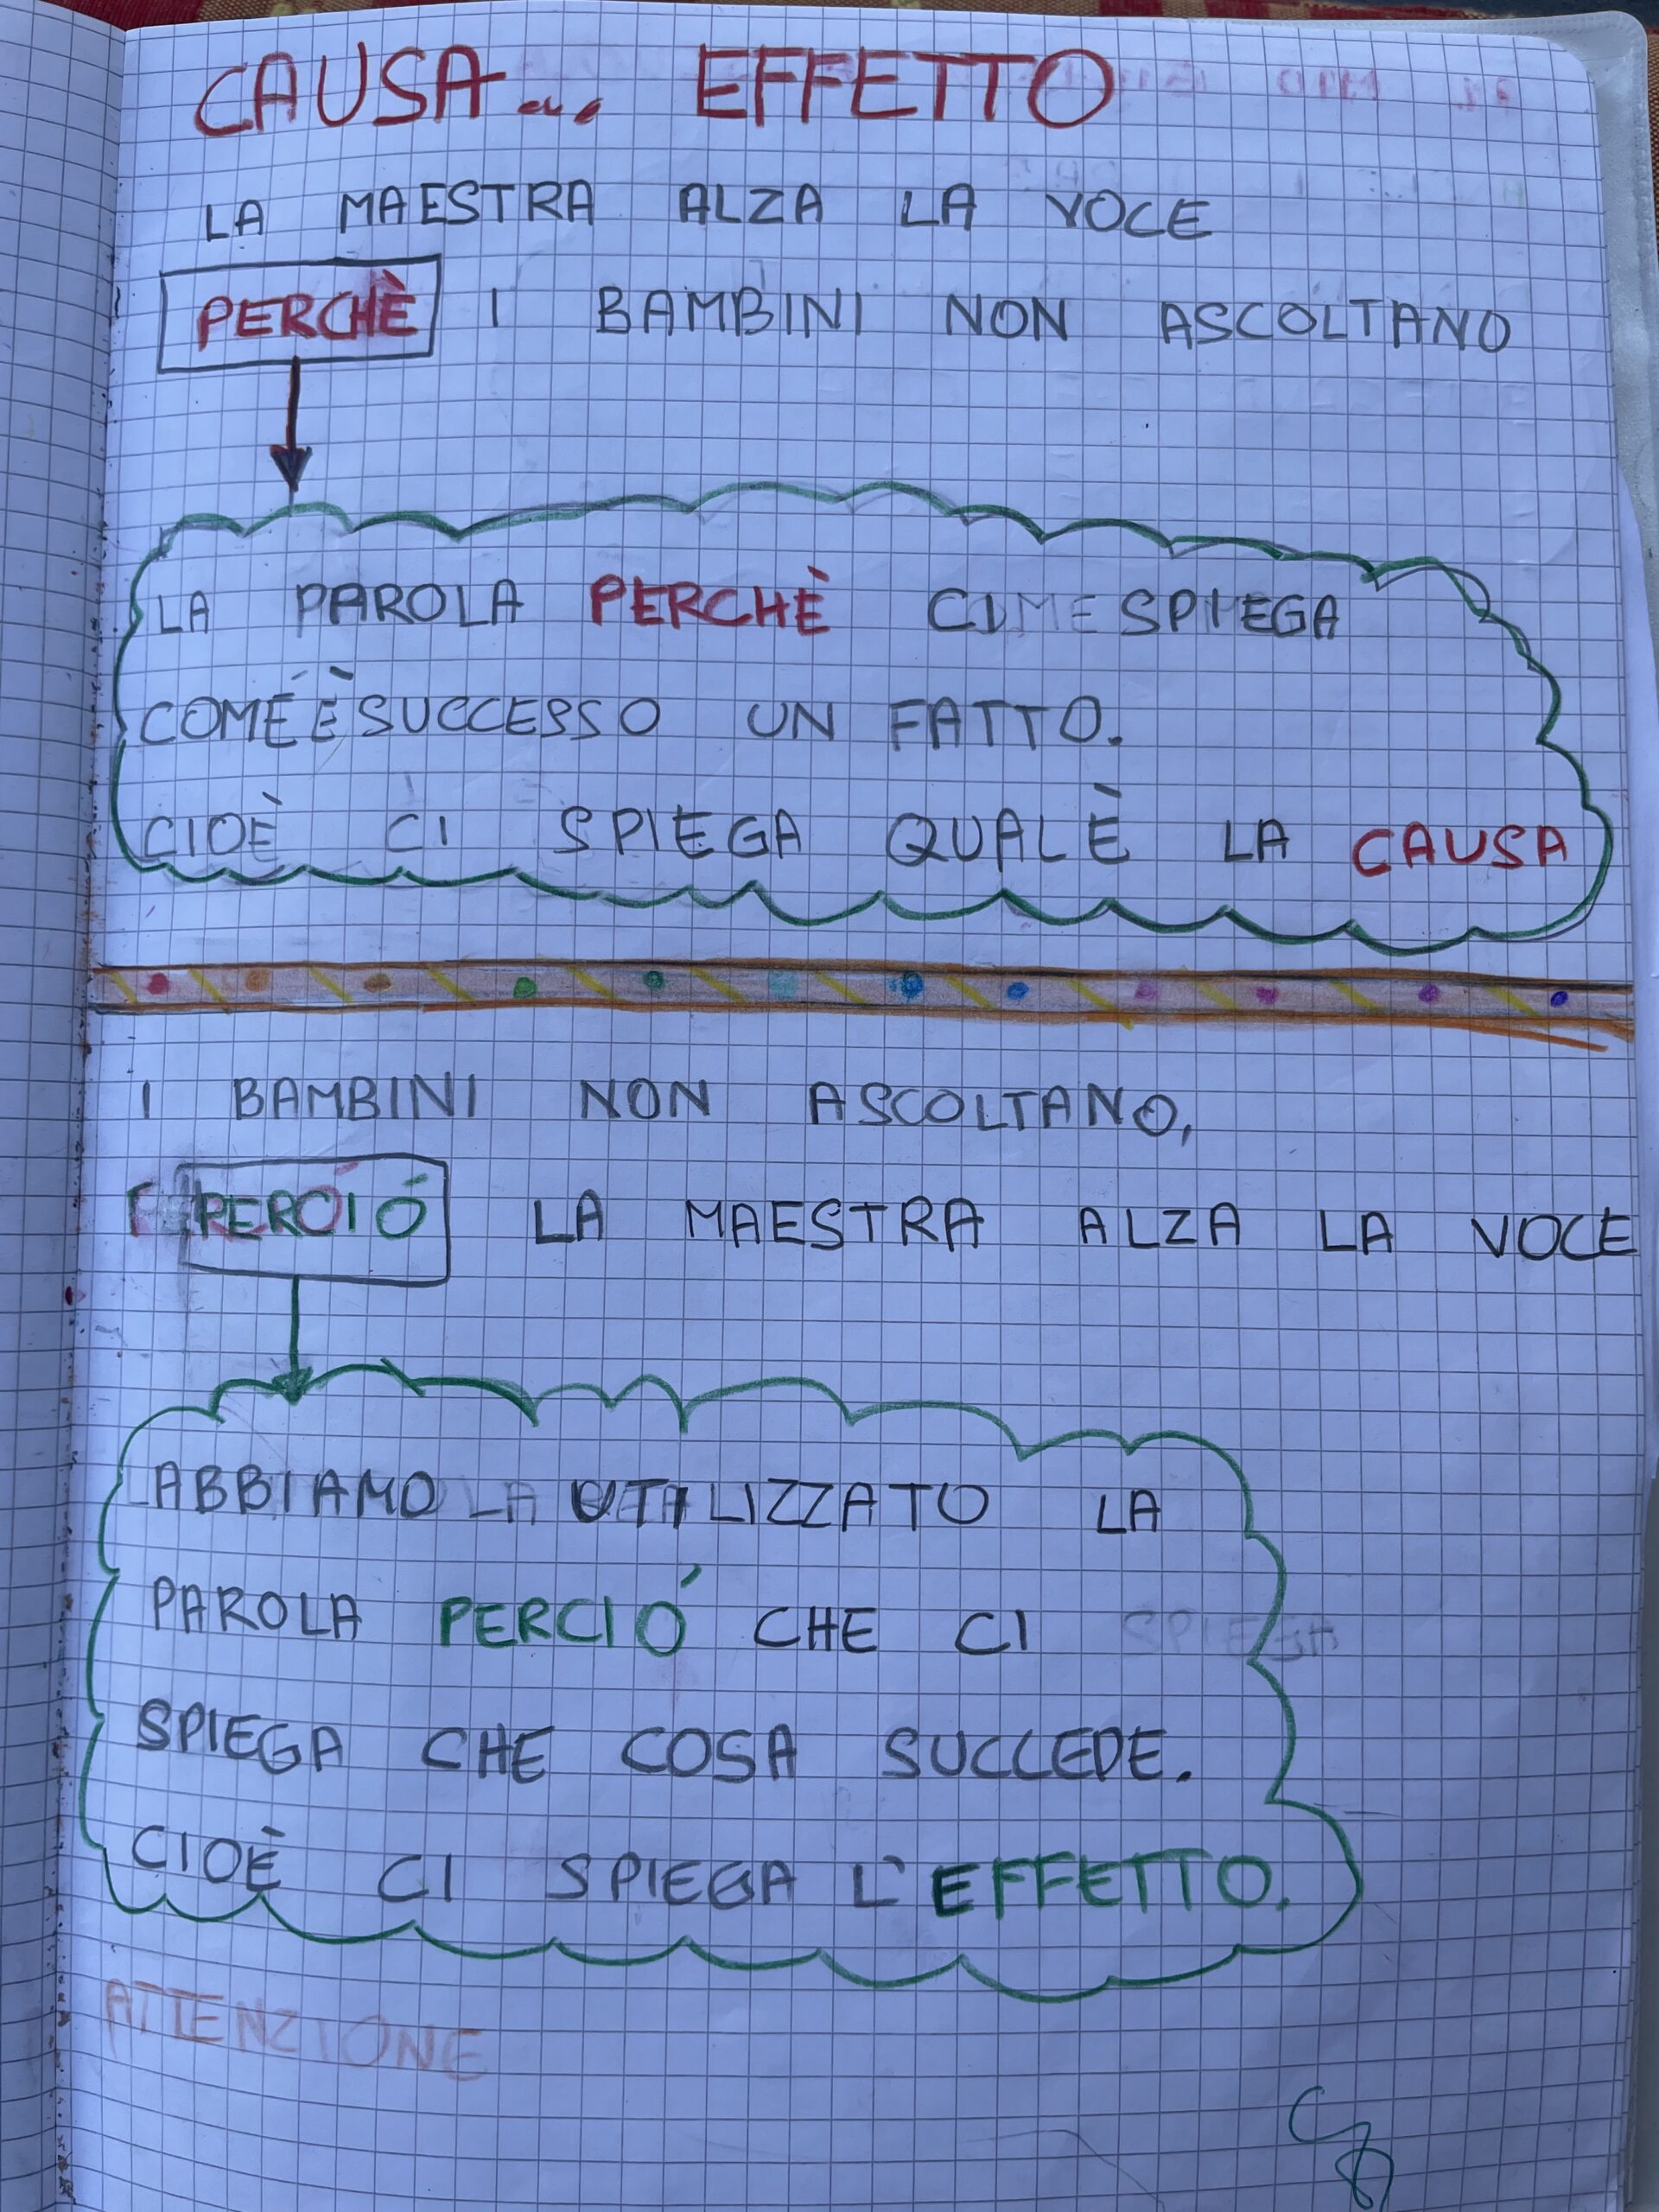 CAUSA... EFFETTO
LA MAESTRA ALZA LA VOCE
PERCHÈ I BAMBINI NON ASCOLTANO
LA PAROLA PERCHÈ CI SPIEGA
COME È SUCCESSO UN FATTO.
CIOÈ CI SPIEGA QUAL È LA CAUSA
I BAMBINI NON ASCOLTANO,
PERCIÓ LA MAESTRA ALZA LA VOCE
ABBIAMO UTILIZZATO LA
PAROLA PERCIÓ CHE CI
SPIEGA CHE COSA SUCCEDE.
CIOÈ CI SPIEGA L'EFFETTO.
ATTENZIONE